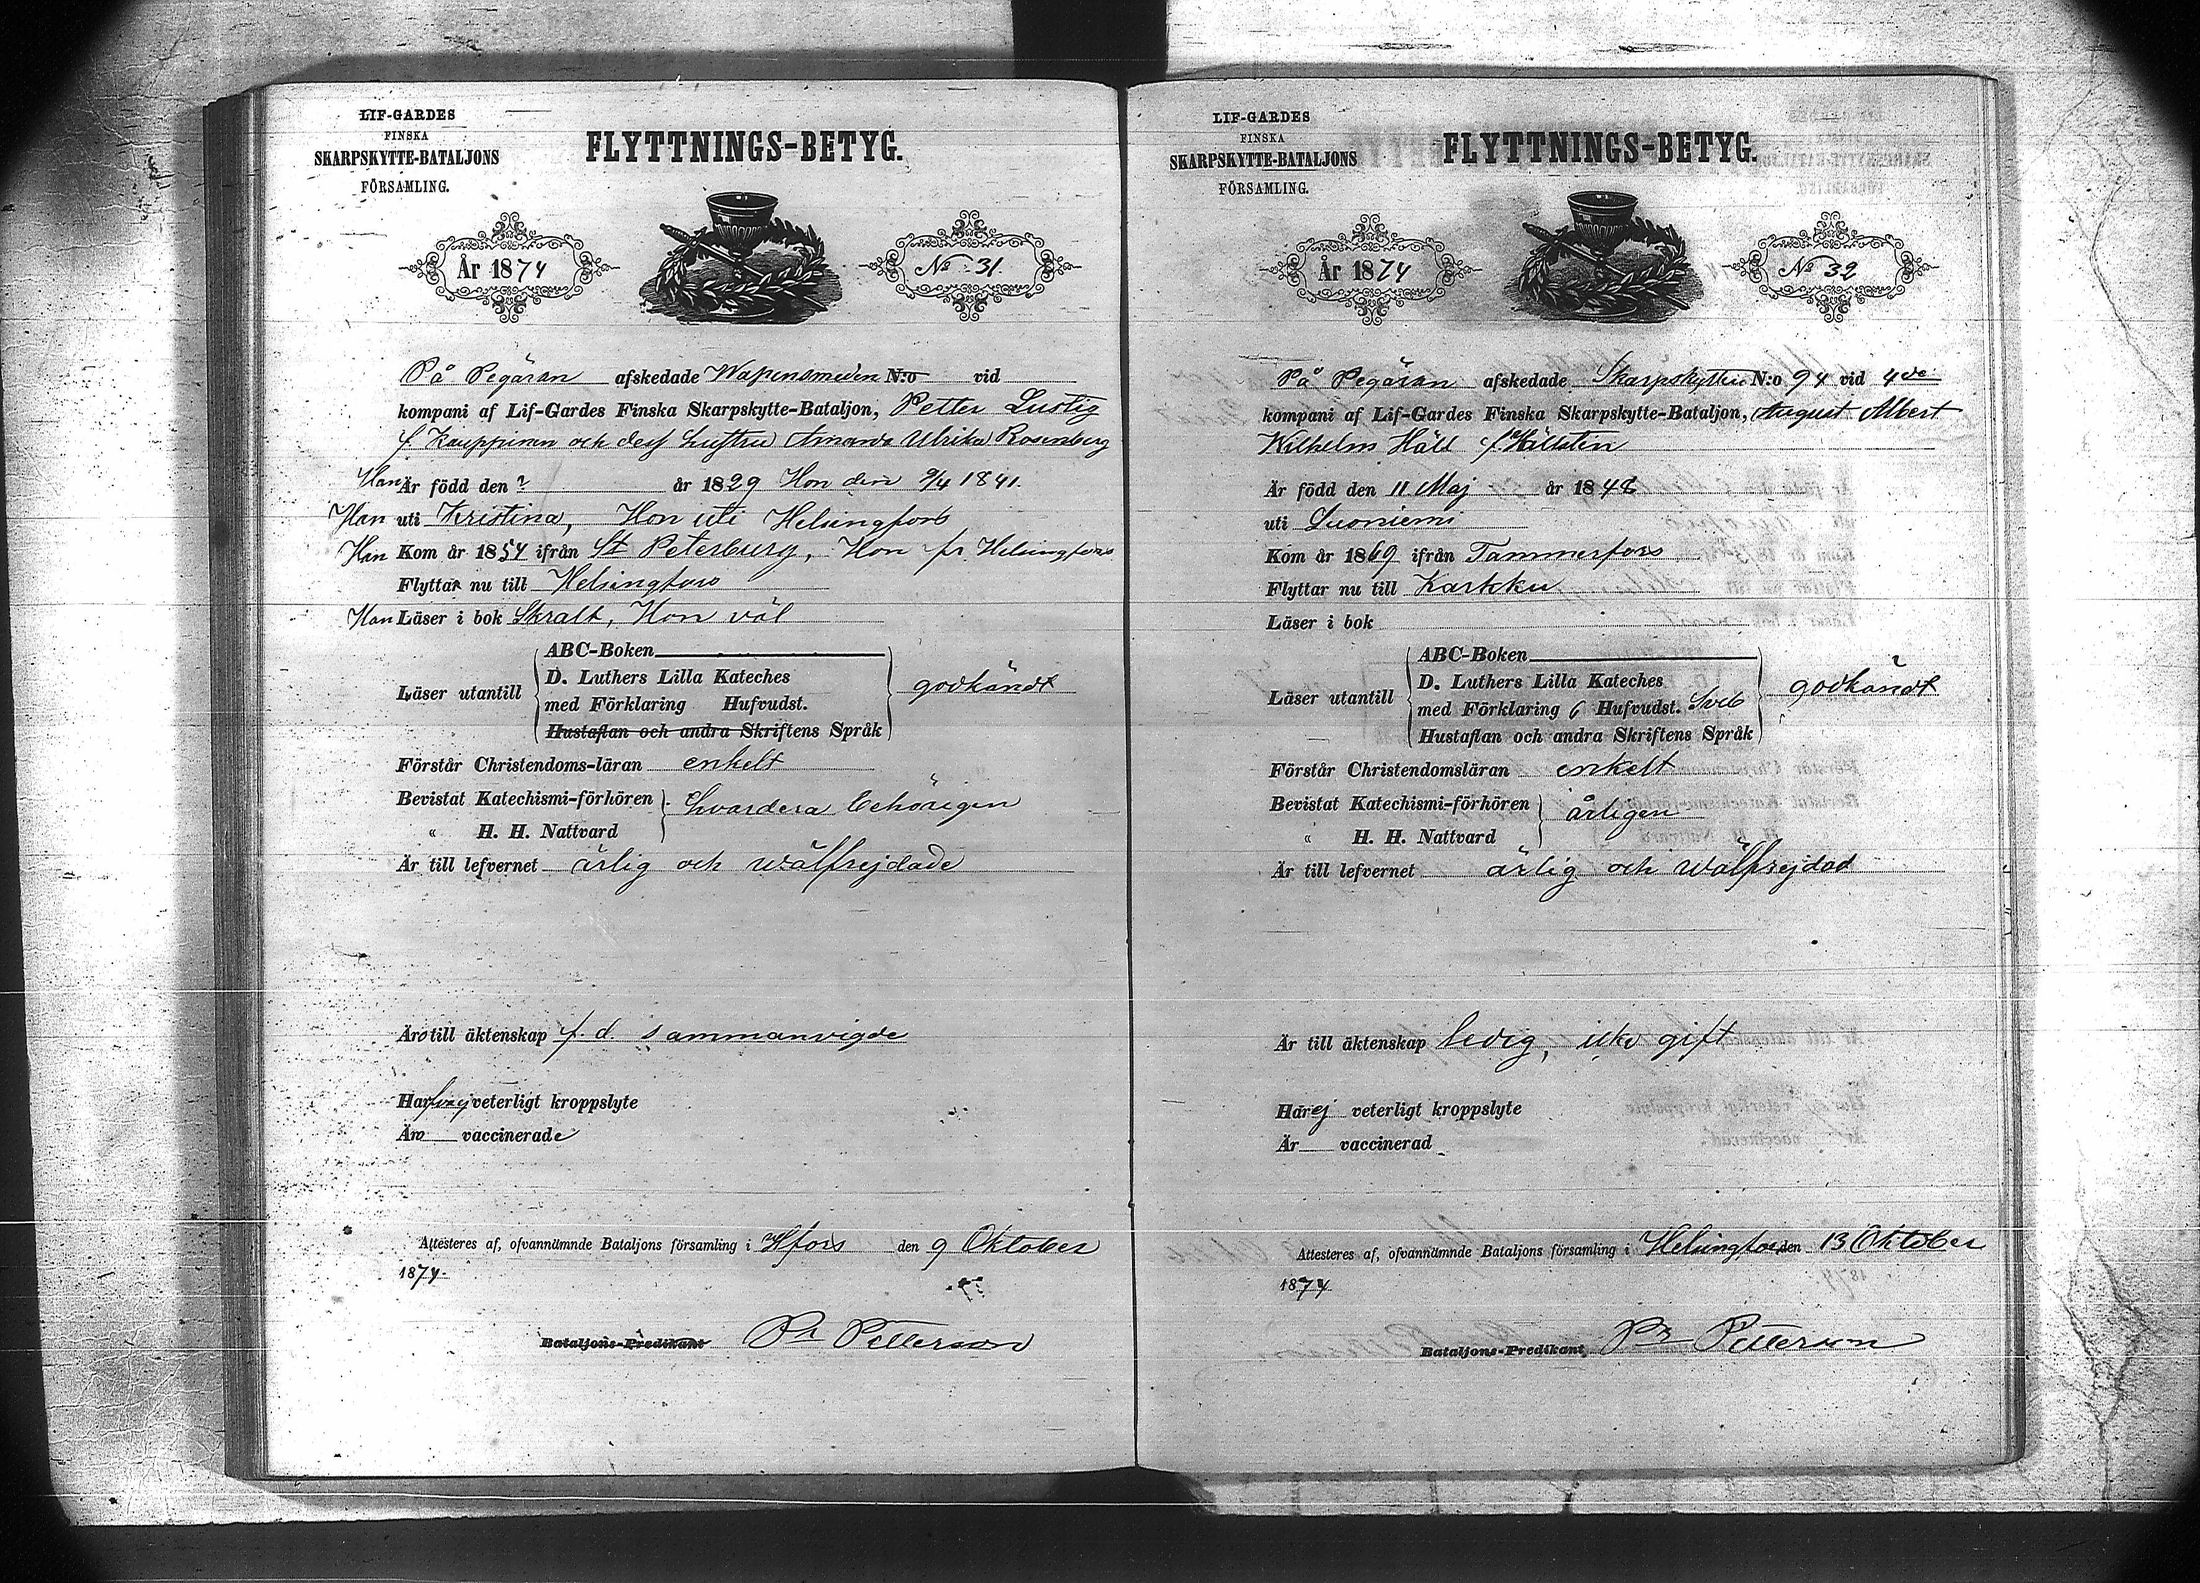 LIF-GARDES
FINSKA
SKARPSKYTTE-BATALJONS
FÖRSAMLING.
FLYTTNINGS-BETYG.
År 1874
No 31.
På Begäran afskedade Wapensmeden N:o vid
kompani af Lif-Gardes Finska Skarpskytte-Bataljon, Petter Lustig
f. Kauppinen och dess hustru Amanda Ulrika Rosenberg
Han Är född den ? år 1829 Hon den 9/4 1841.
Han uti Kristina, Hon uti Helsingfors
Han Kom år 1854 ifrån St Petersburg, Hon fr Helsingfors
Flyttar nu till Helsingfors
Han Läser i bok Skralt, Hon väl
ABC-Boken
Läser utantill D. Luthers Lilla Kateches
med Förklaring Hufvudst.
Hustaflan och andra Skriftens Språk
godkändt
Förstår Christendoms-läran enkelt
Bevistat Katechismi-förhören
" H. H. Nattvard
hvardera behörigen
Är till lefvernet ärlig och wälfrejdade
Äro till äktenskap f. d. sammanvigde
Har veterligt kroppslyte
Äro vaccinerade
Attesteras af, ofvannämnde Bataljons församling i H:fors den 9 Oktober
1874.
Bataljons-Predikant Petterson
LIF-GARDES
FINSKA
SKARPSKYTTE-BATALJONS
FÖRSAMLING.
FLYTTNINGS-BETYG.
År 1874
No 32
På Begäran afskedade Skarpskytten N:o 94 vid 4de
kompani af Lif-Gardes Finska Skarpskytte-Bataljon, August Albert
Wilhelm Häll f. Hällsten
Är född den 11 Maj år 1848
uti Suoniemi
Kom år 1869 ifrån Tammerfors
Flyttar nu till Karkku
Läser i bok
ABC-Boken
Läser utantill D. Luthers Lilla Kateches
med Förklaring 6 Hufvudst. Sveb
Hustaflan och andra Skriftens Språk
godkändt
Förstår Christendomsläran enkelt
Bevistat Katechismi-förhören
" H. H. Nattvard
årligen
Är till lefvernet ärlig och wälfrejdad
Är till äktenskap ledig, icke gift
Har ej veterligt kroppslyte
Är vaccinerad
Attesteres af, ofvannämnde Bataljons församling i Helsingfors den 13 Oktober
1874
Bataljons-Predikant, Petterson